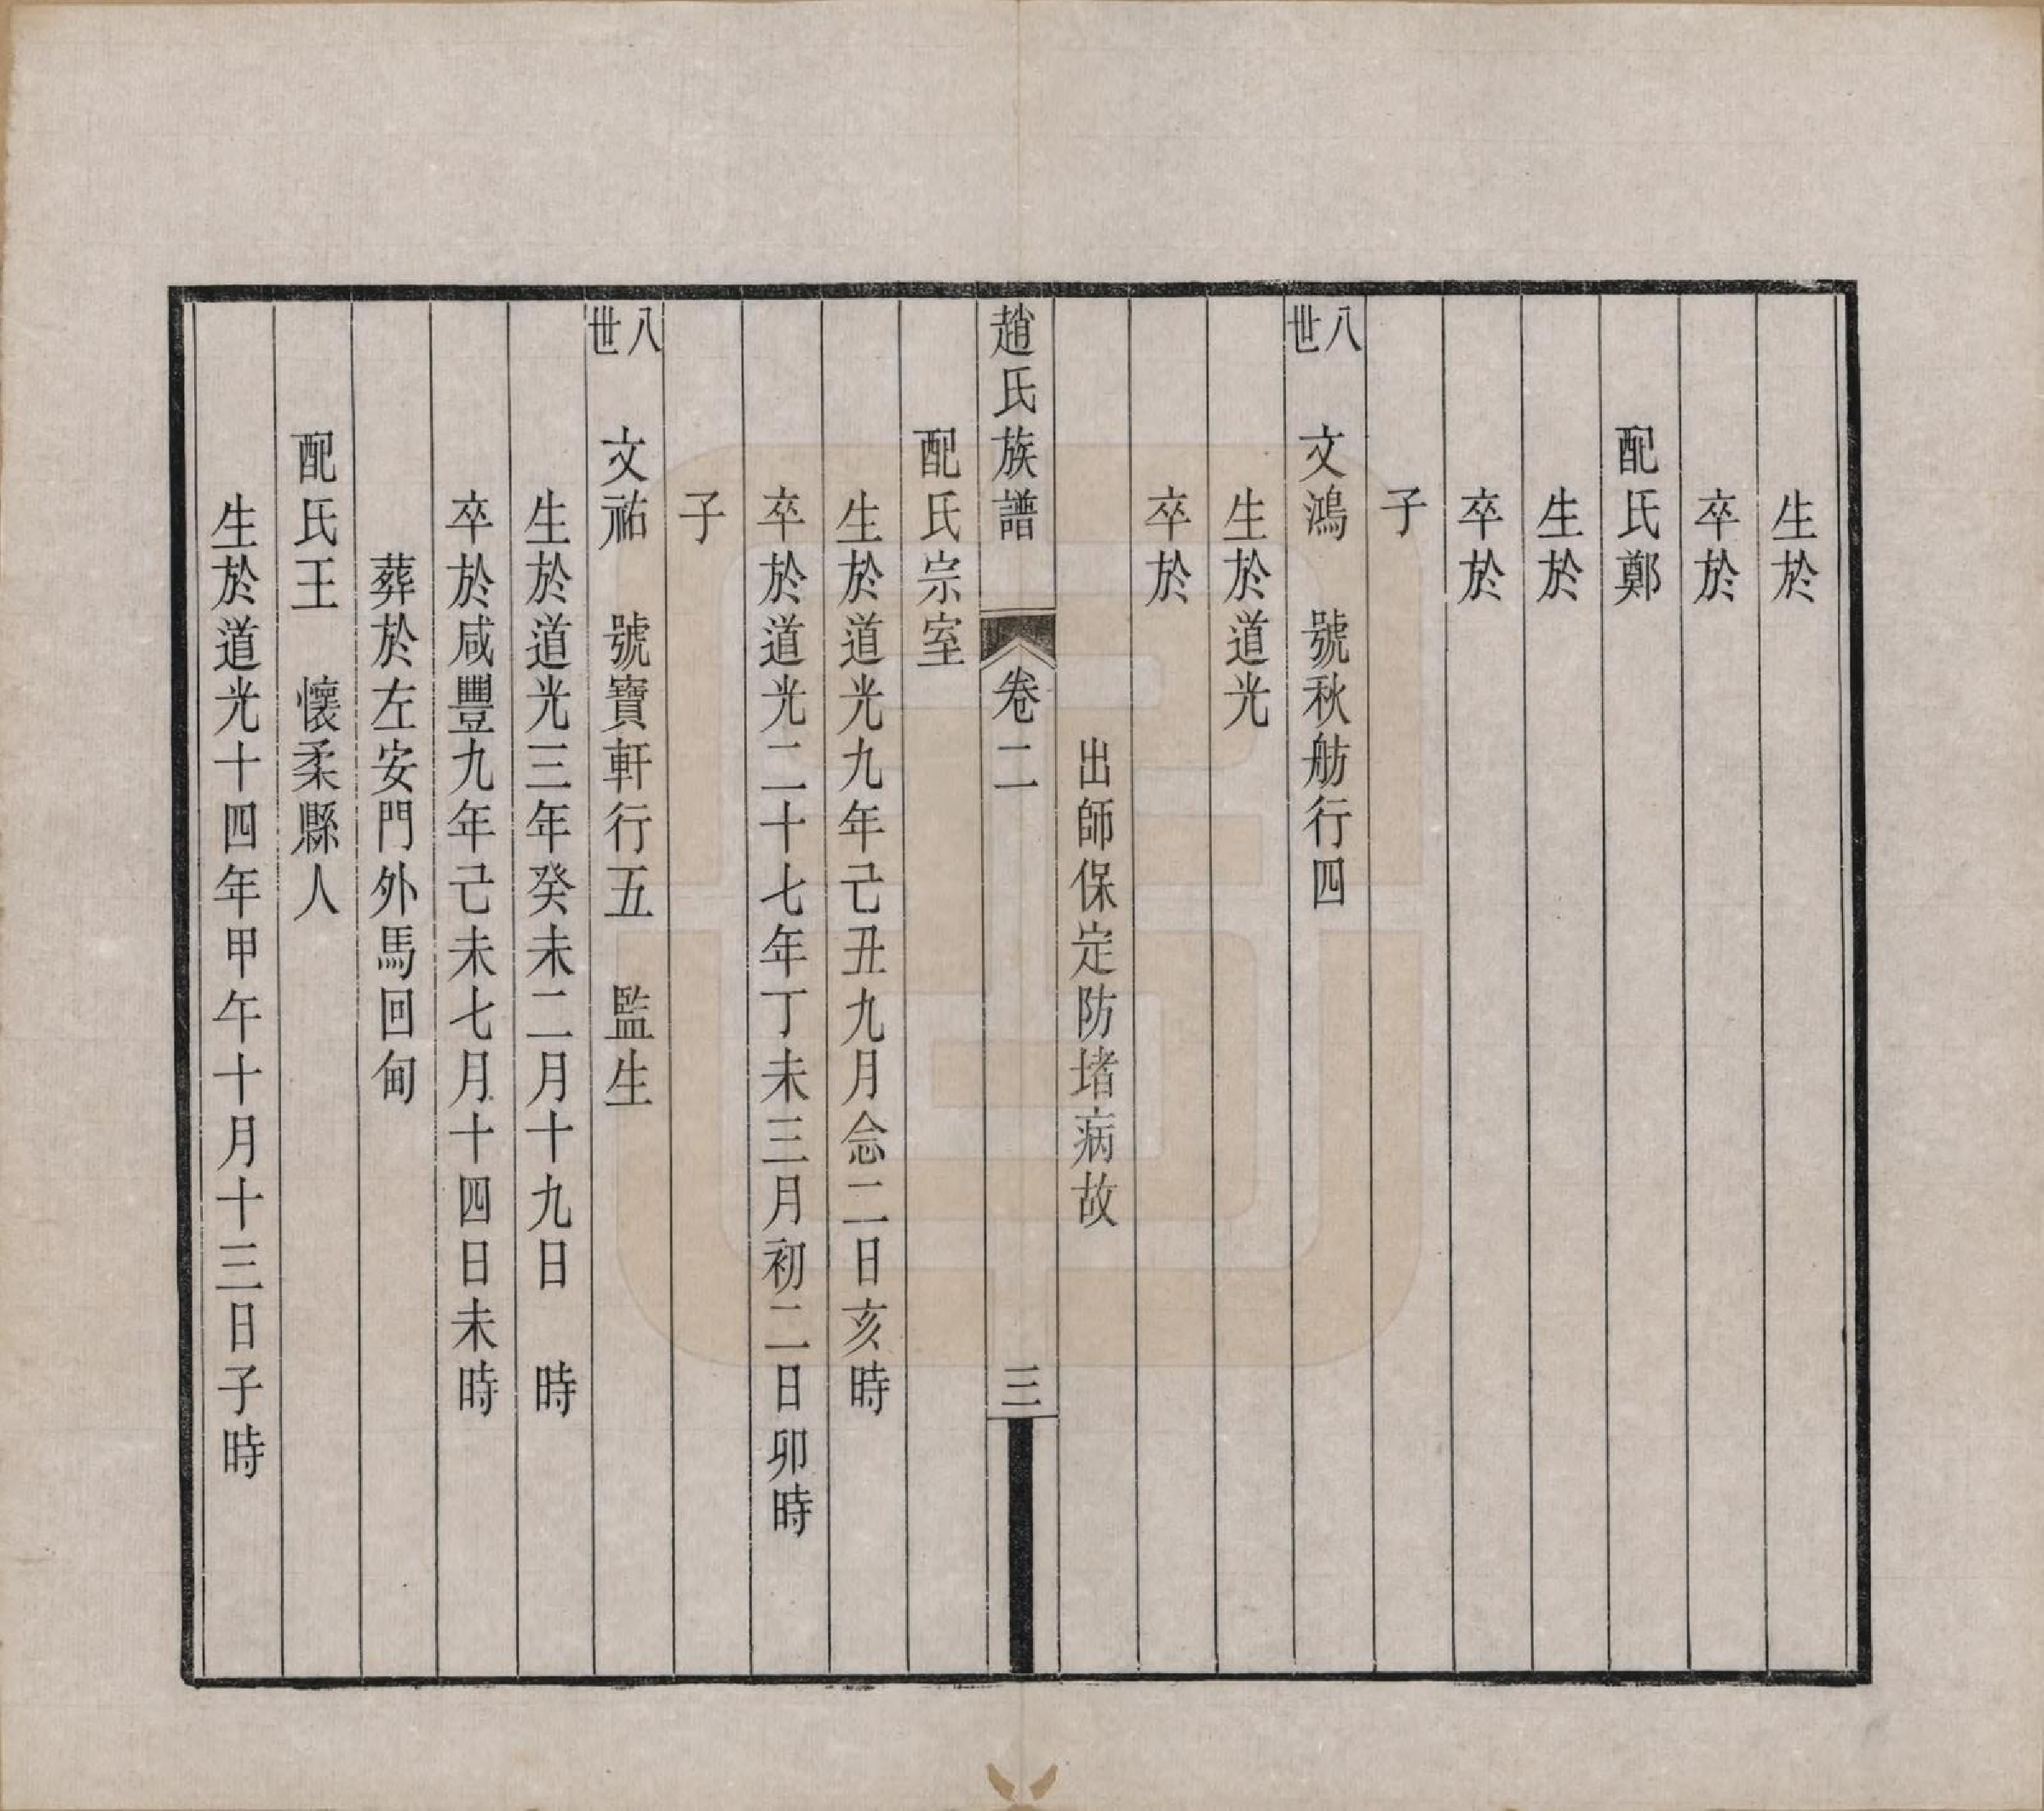 生於
卒於
配氏鄭
生於
卒於
子
八世　文鴻　號秋舫行四
生於道光
卒於
出師保定防堵病故
趙氏族譜　卷二　三
配氏宗室
生於道光九年己丑九月念二日亥時
卒於道光二十七年丁未三月初二日卯時
子
八世　文祐　號寶軒行五　監生
生於道光三年癸未二月十九日　時
卒於咸豐九年己未七月十四日未時
葬於左安門外馬回甸
配氏王　懷柔縣人
生於道光十四年甲午十月十三日子時